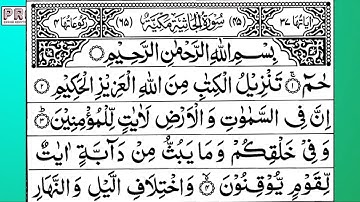 PR
اٰیاتها ۳۷ (۴۵) سُوْرَةُ الْجَاثِیَةِ مَكِّیَّةٌ (۶۵) رکوعاتها ۴
بِسْمِ اللّٰهِ الرَّحْمٰنِ الرَّحِیْمِ
حٰمٓ ۚ﴿۱﴾ تَنْزِیْلُ الْكِتٰبِ مِنَ اللّٰهِ الْعَزِیْزِ الْحَكِیْمِ ﴿۲﴾
اِنَّ فِی السَّمٰوٰتِ وَ الْاَرْضِ لَاٰیٰتٍ لِّلْمُؤْمِنِیْنَ ﴿۳﴾
وَ فِیْ خَلْقِكُمْ وَ مَا یَبُثُّ مِنْ دَآبَّةٍ اٰیٰتٌ
لِّقَوْمٍ یُّوْقِنُوْنَ ﴿۴﴾ وَ اخْتِلَافِ الَّیْلِ وَ النَّهَارِ